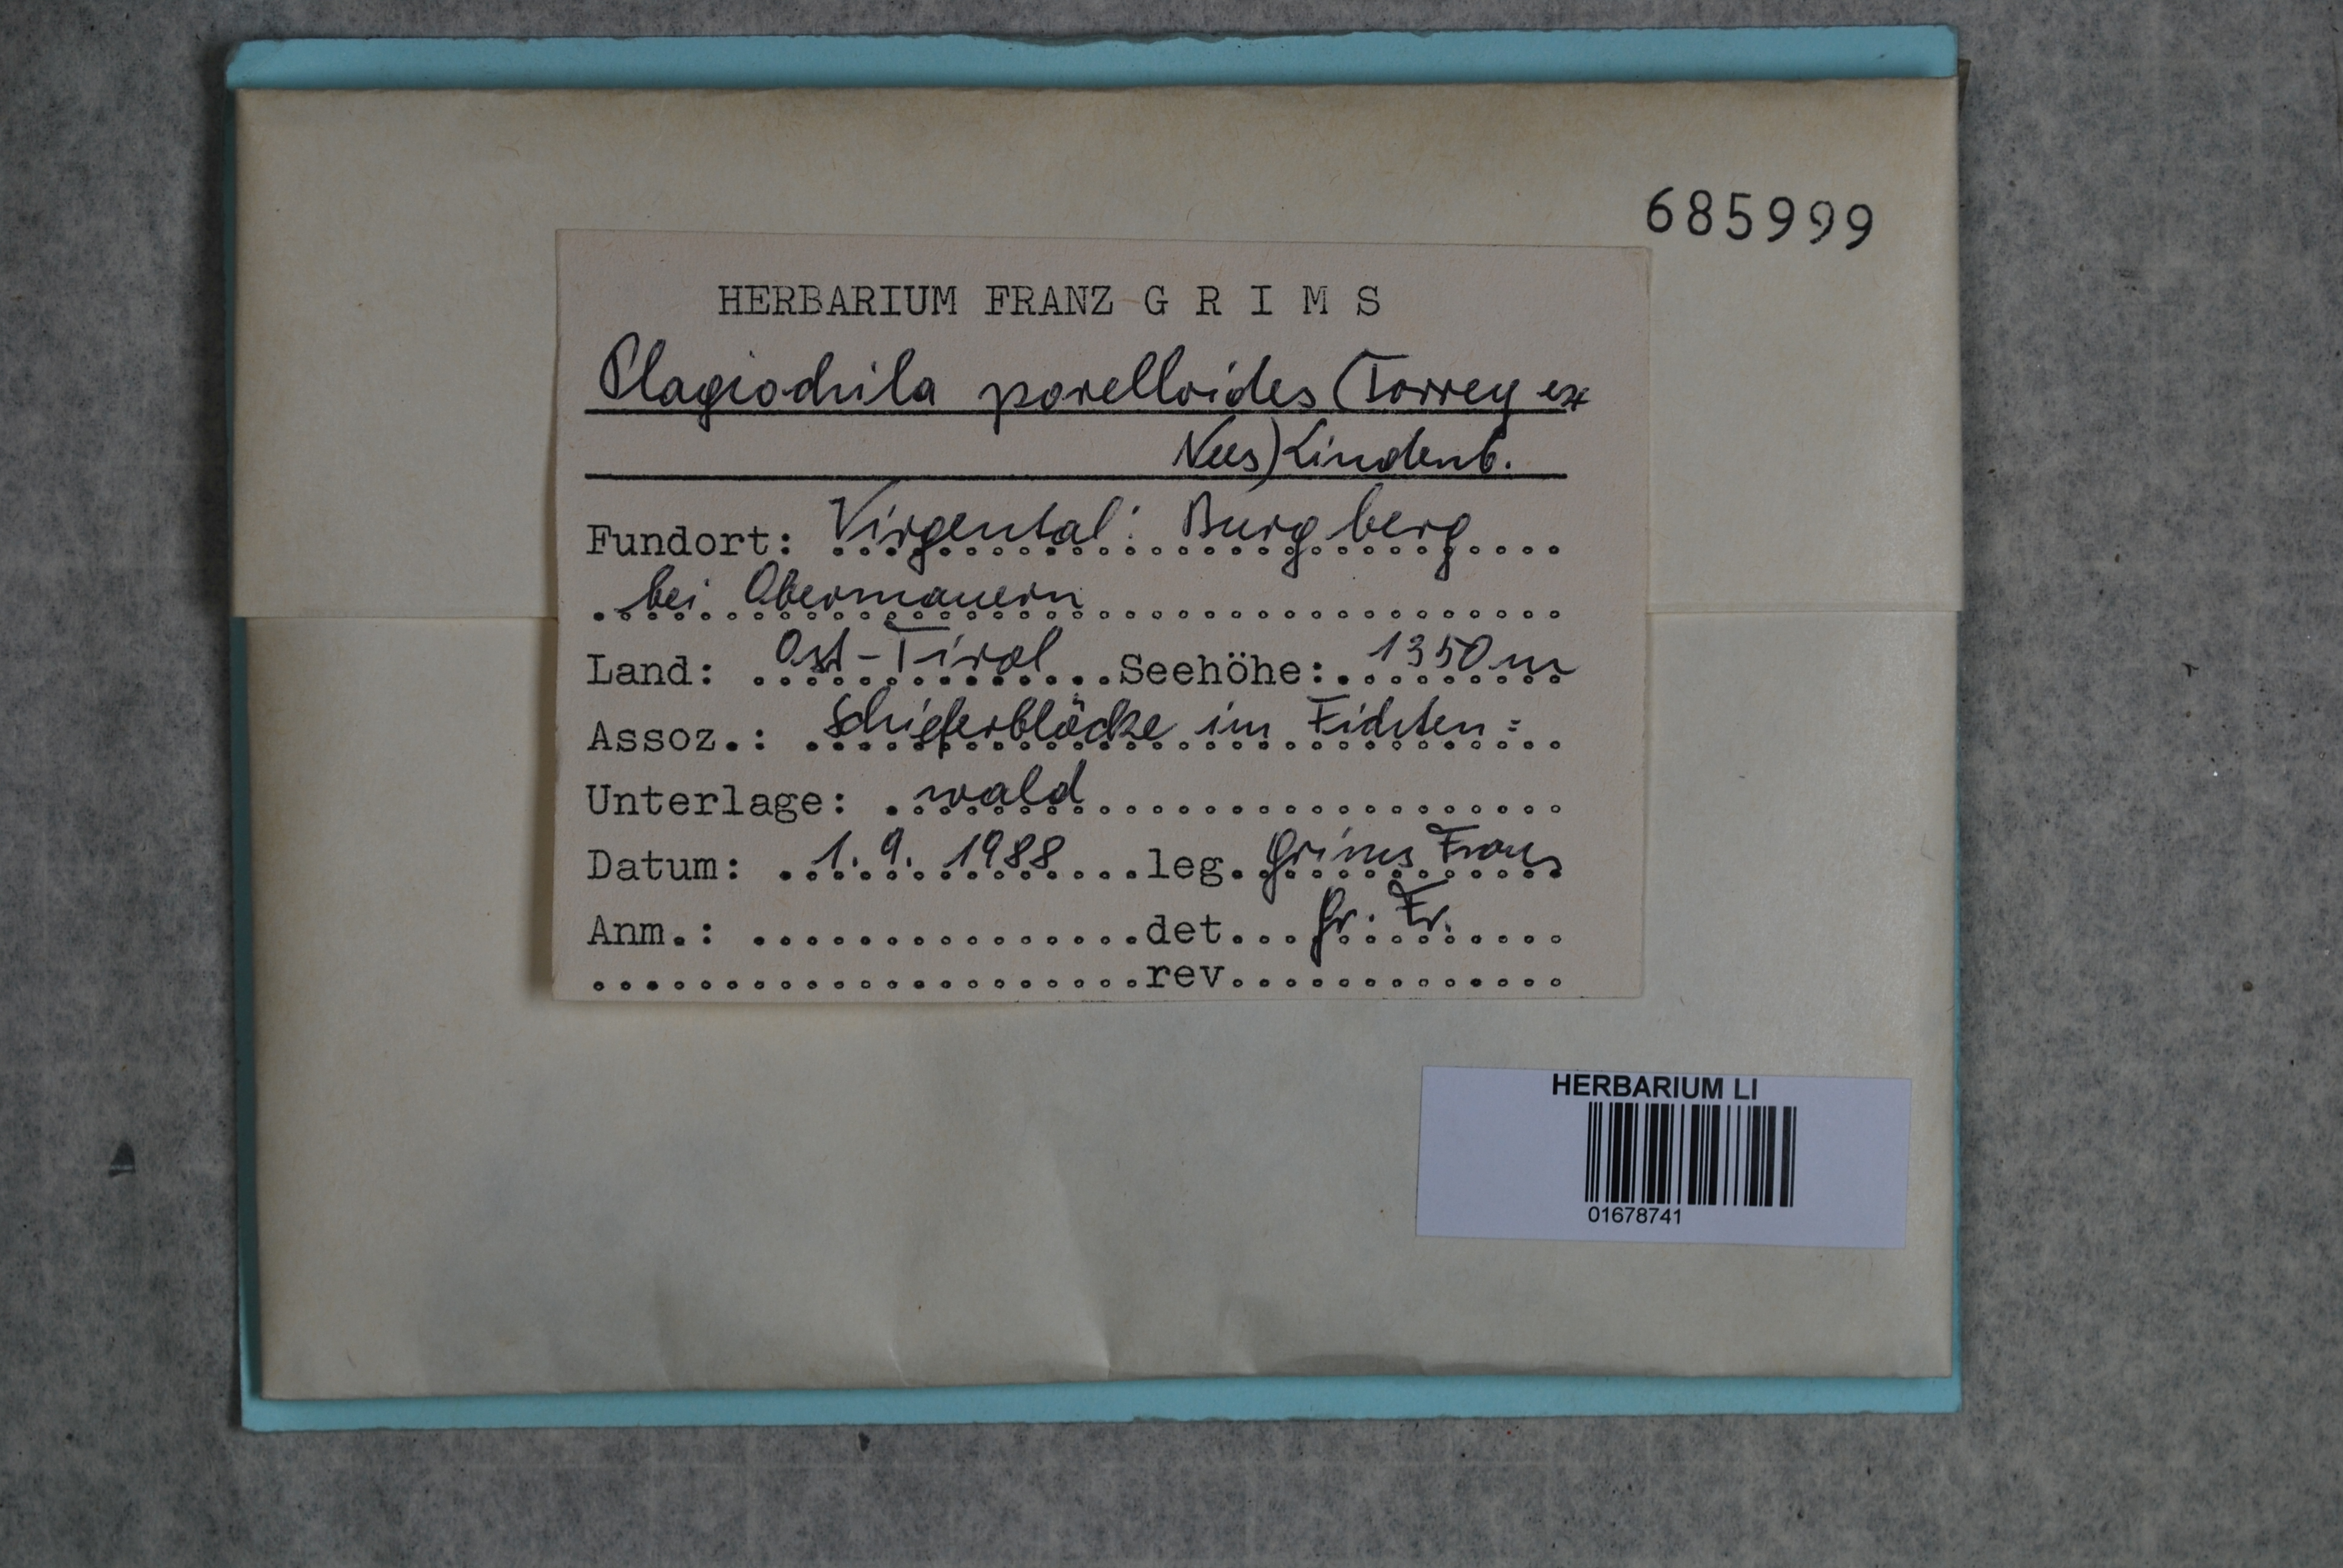 685999
HERBARIUM FRANZ G R I M S
Plagiochila porelloides (Torrey ex
Nees) Lindenb.
Fundort: Virgental: Burgberg
bei Obermauern
Land: Ost-Tirol Seehöhe: 1350 m
Assoz.: Schieferblöcke im Fichten=
Unterlage: wald
Datum: 1. 9. 1988 leg. Grims Franz
Anm.: det. Gr. Fr.
rev.
HERBARIUM LI
01678741